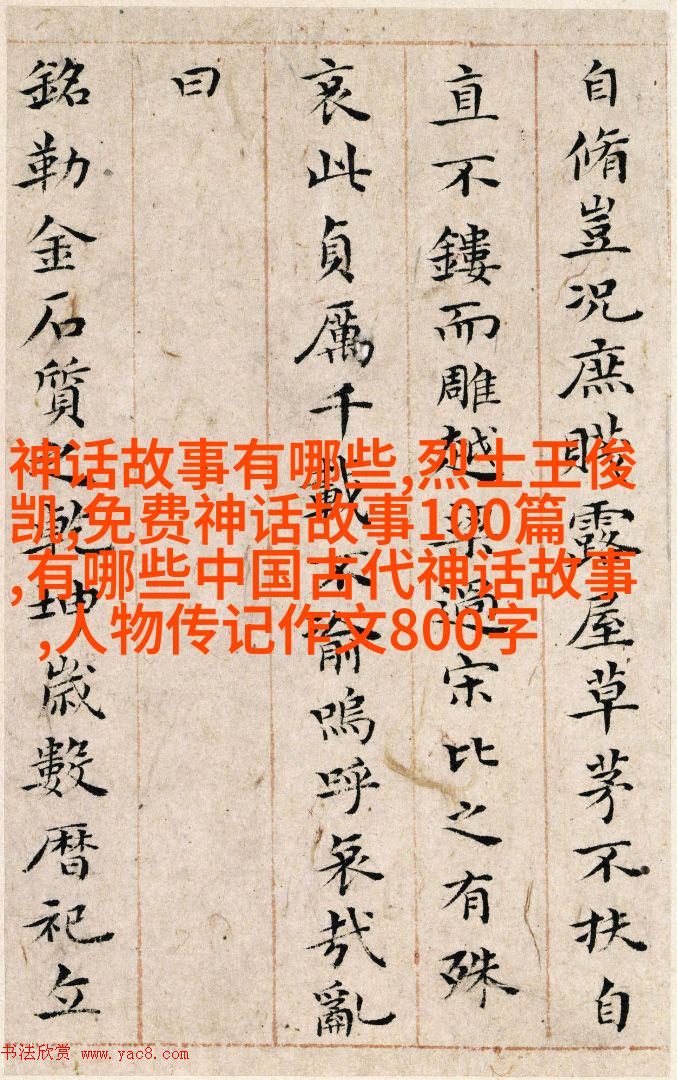 自脩豈況庶賤露屋草茅不扶自
直不鏤而雕越梁過宋比之有殊
哀此貞厲千載不渝嗚呼哀哉亂
曰
銘勒金石質之乾坤歲數暦祀丘
神话故事有哪些,烈士王俊
凯,免费神话故事100篇
,有哪些中国古代神话故事
,人物传记作文800字
书法欣赏 www.yac8.com